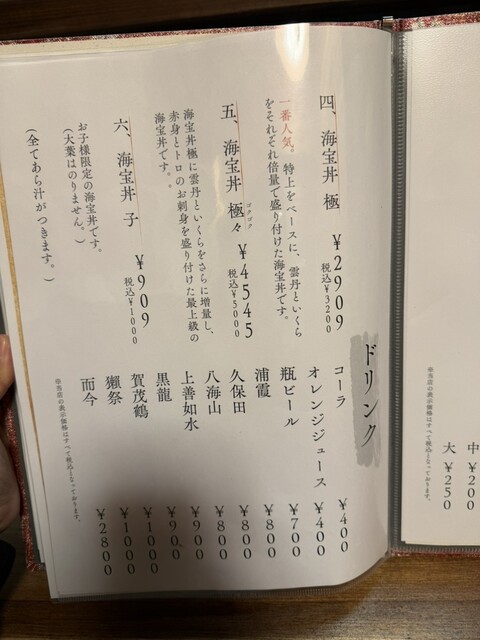 中 ￥200
大 ￥250
※当店の表示価格はすべて税込となっております。
四、海宝丼 極 ￥2909
税込￥3200
一番人気。特上をベースに、雲丹といくら
をそれぞれ倍量で盛り付けた海宝丼です。
五、海宝丼 極々 ￥4545
ゴクゴク
税込￥5000
海宝丼極に雲丹といくらをさらに増量し、
赤身とトロのお刺身を盛り付けた最上級の
海宝丼です。
六、海宝丼 子 ￥909
税込￥1000
お子様限定の海宝丼です。
(大葉はのりません。)
(全てあら汁がつきます。)
ドリンク
コーラ ￥400
オレンジジュース ￥400
瓶ビール ￥700
浦霞 ￥800
久保田 ￥800
八海山 ￥800
上善如水 ￥900
黒龍 ￥900
賀茂鶴 ￥1000
獺祭 ￥1000
而今 ￥2800
※当店の表示価格はすべて税込となっております。